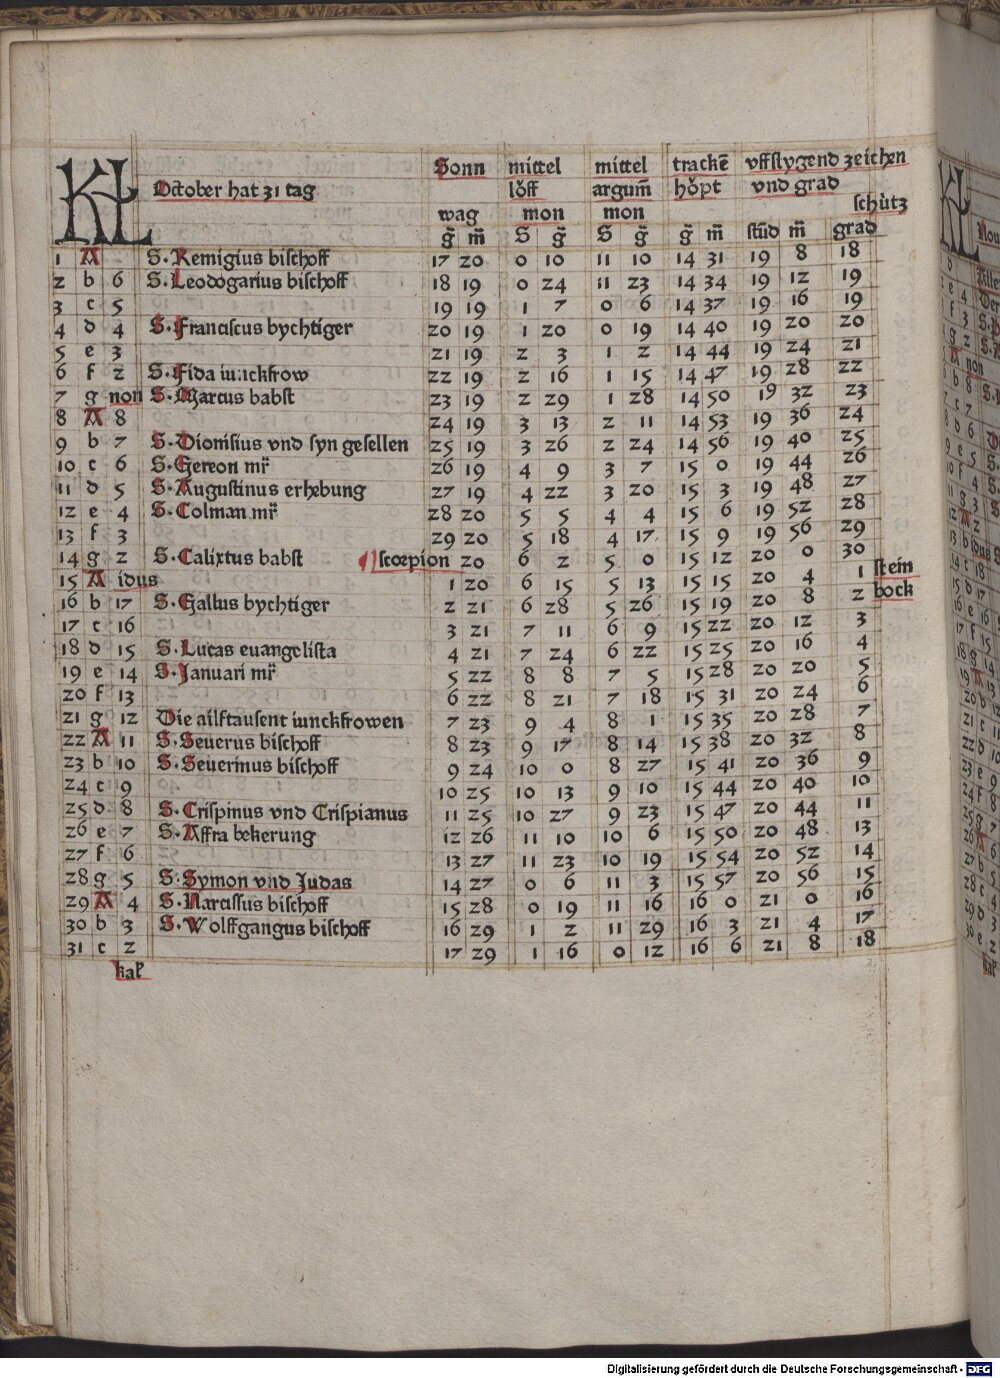 KL October hat 31 tag
Sonn mittel mittel trackē vffstygend zeichen
löff argum̄ höpt vnd grad
wag mon mon schütz
g̃ m̃ S g̃ S g̃ g̃ m̃ stūd m̃ grad
1 A S. Remigius bischoff 17 20 0 10 11 10 14 31 19 8 18
2 b 6 S. Leodogarius bischoff 18 19 0 24 11 23 14 34 19 12 19
3 c 5 19 19 1 7 0 6 14 37 19 16 19
4 d 4 S. Franciscus bychtiger 20 19 1 20 0 19 14 40 19 20 20
5 e 3 21 19 2 3 1 2 14 44 19 24 21
6 f 2 S. Fida iunckfrow 22 19 2 16 1 15 14 47 19 28 22
7 g non S. Marcus babst 23 19 2 29 1 28 14 50 19 32 23
8 A 8 24 19 3 13 2 11 14 53 19 36 24
9 b 7 S. Dionisius vnd syn gesellen 25 19 3 26 2 24 14 56 19 40 25
10 c 6 S. Gereon mr̃ 26 19 4 9 3 7 15 0 19 44 26
11 d 5 S. Augustinus erhebung 27 19 4 22 3 20 15 3 19 48 27
12 e 4 S. Colman mr̃ 28 20 5 5 4 4 15 6 19 52 28
13 f 3 29 20 5 18 4 17 15 9 19 56 29
14 g 2 S. Calixtus babst scorpion 20 6 2 5 0 15 12 20 0 30
15 A idus 1 20 6 15 5 13 15 15 20 4 1 stein
16 b 17 S. Gallus bychtiger 2 21 6 28 5 26 15 19 20 8 2 bock
17 c 16 3 21 7 11 6 9 15 22 20 12 3
18 d 15 S. Lucas euangelista 4 21 7 24 6 22 15 25 20 16 4
19 e 14 S. Januari mr̃ 5 22 8 8 7 5 15 28 20 20 5
20 f 13 6 22 8 21 7 18 15 31 20 24 6
21 g 12 Die ailftausent iunckfrowen 7 23 9 4 8 1 15 35 20 28 7
22 A 11 S. Seuerus bischoff 8 23 9 17 8 14 15 38 20 32 8
23 b 10 S. Seuerinus bischoff 9 24 10 0 8 27 15 41 20 36 9
24 c 9 10 25 10 13 9 10 15 44 20 40 10
25 d 8 S. Crispinus vnd Crispianus 11 25 10 27 9 23 15 47 20 44 11
26 e 7 S. Affra bekerung 12 26 11 10 10 6 15 50 20 48 13
27 f 6 13 27 11 23 10 19 15 54 20 52 14
28 g 5 S. Symon vnd Judas 14 27 0 6 11 3 15 57 20 56 15
29 A 4 S. Narcissus bischoff 15 28 0 19 11 16 16 0 21 0 16
30 b 3 S. Wolffgangus bischoff 16 29 1 2 11 29 16 3 21 4 17
31 c 2 17 29 1 16 0 12 16 6 21 8 18
kal̃
Digitalisierung gefördert durch die Deutsche Forschungsgemeinschaft - DFG